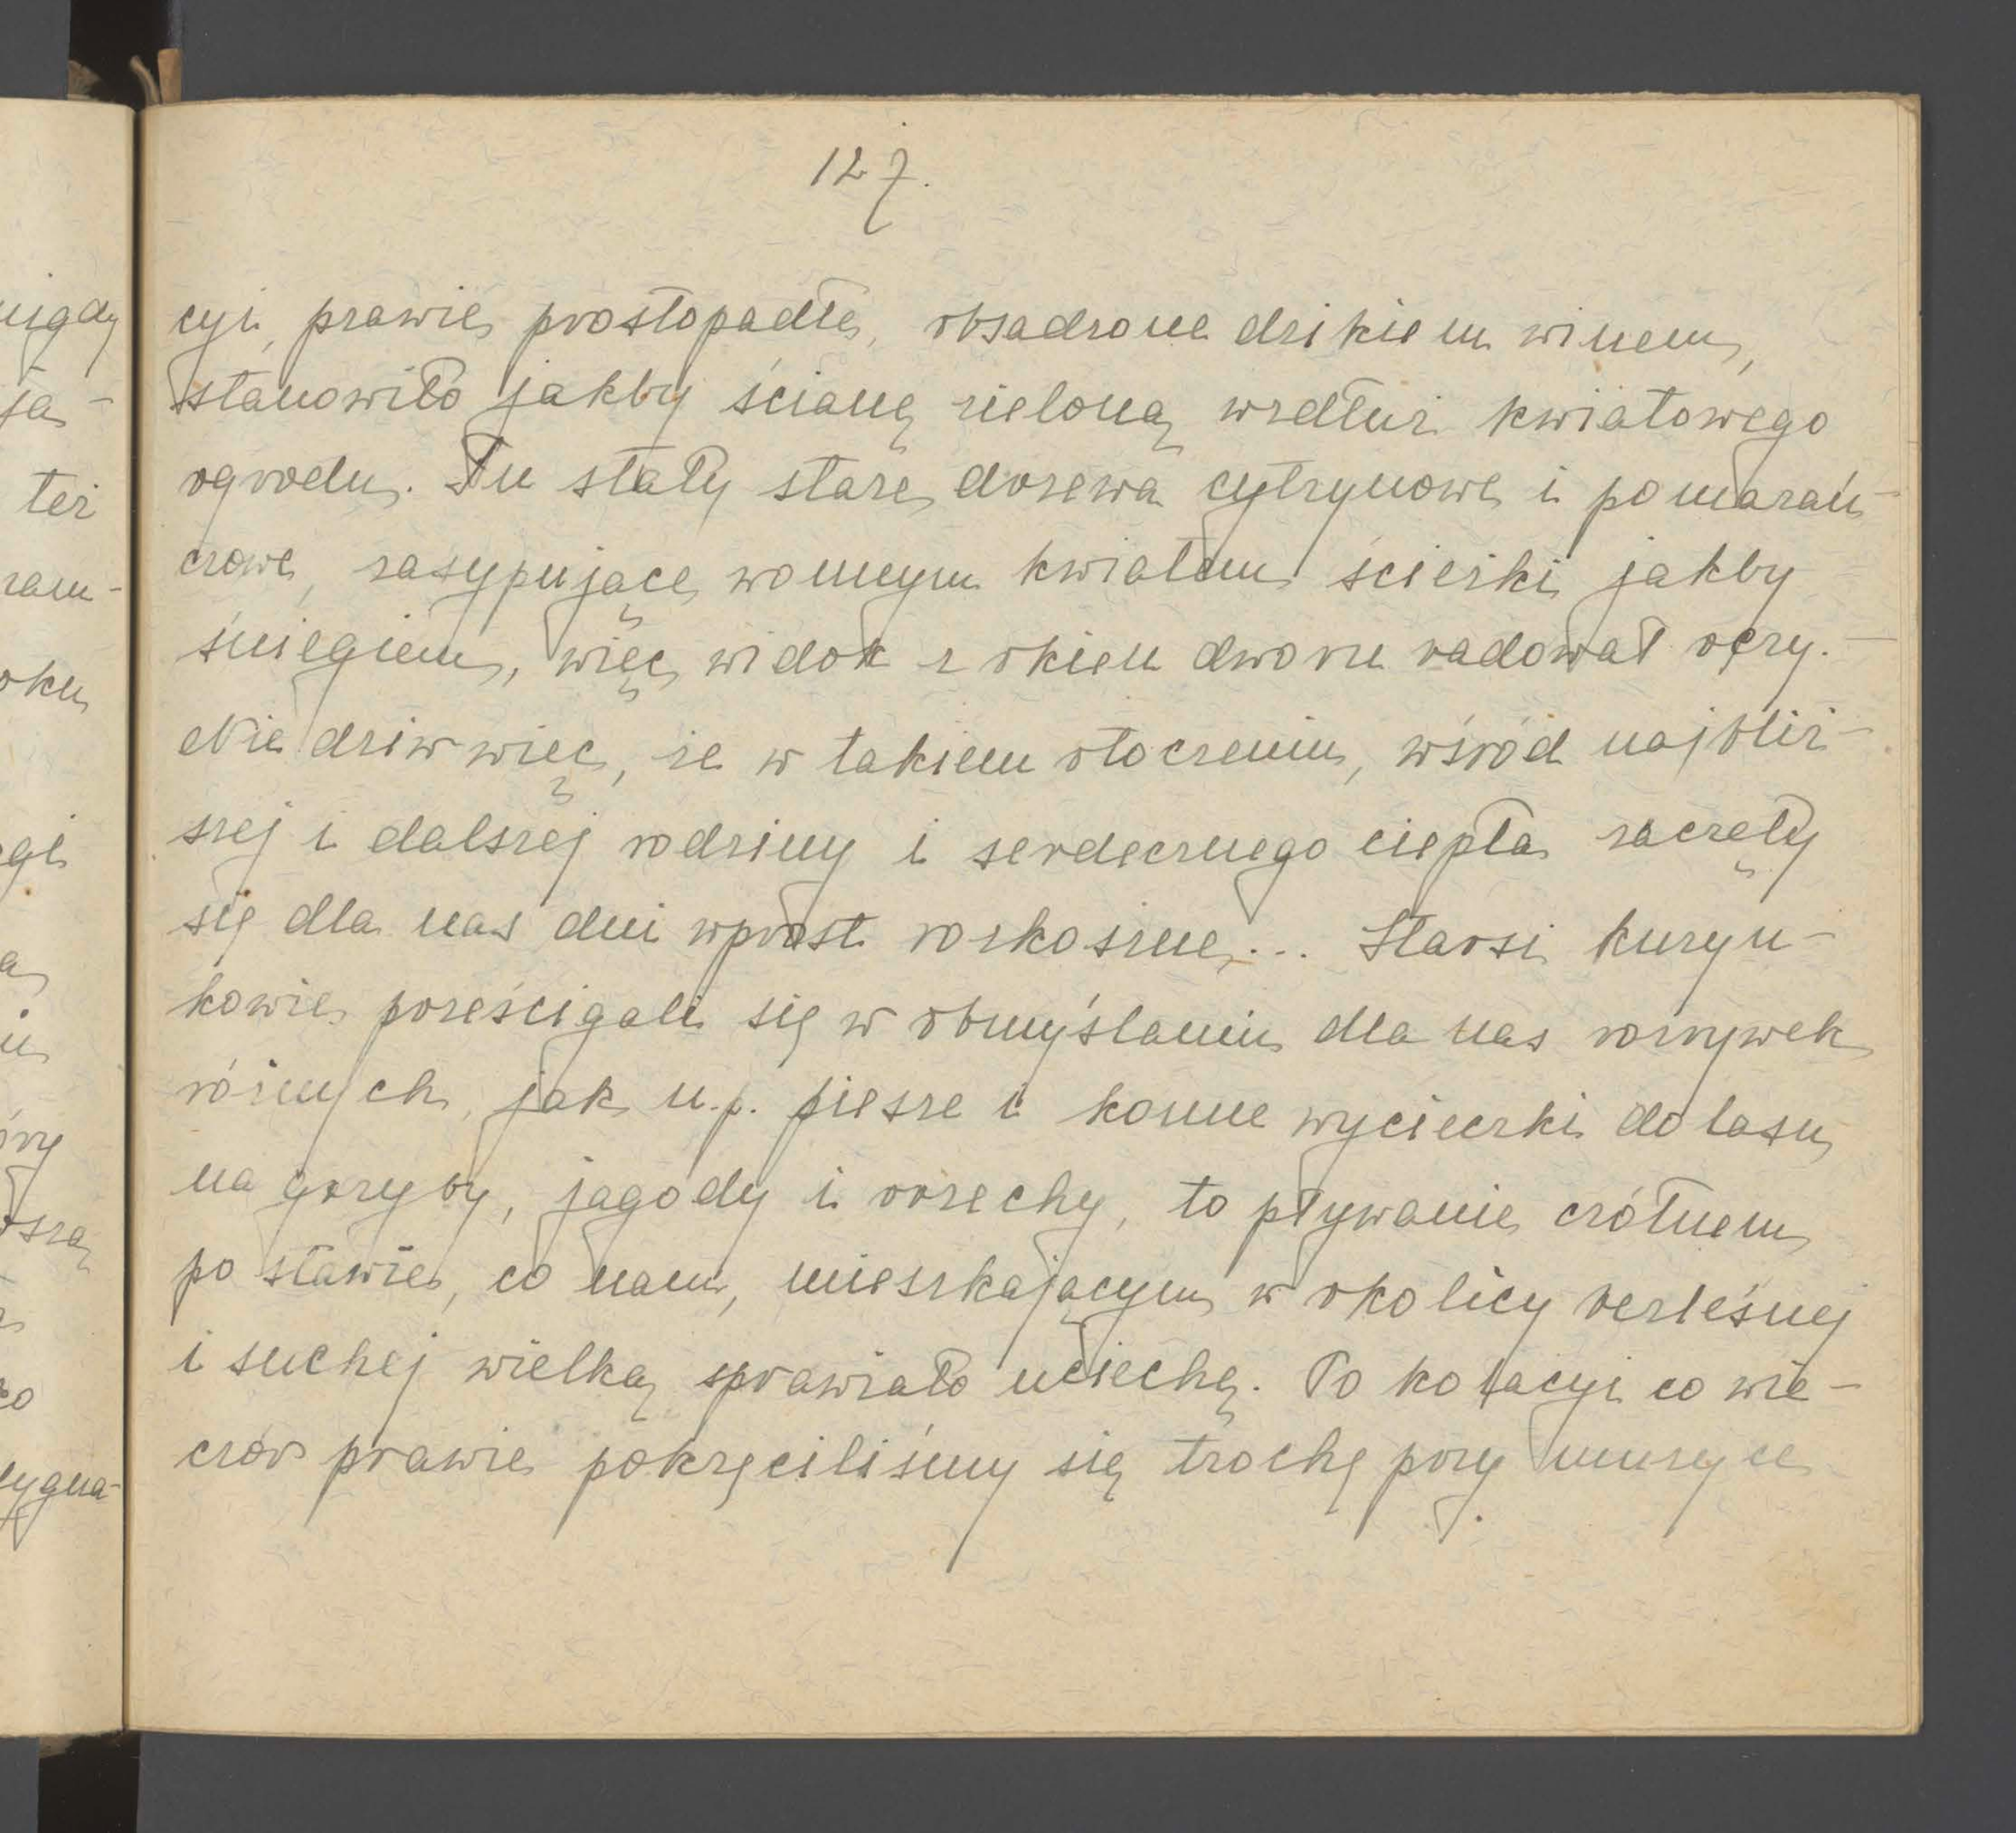 127.
cyi, prawie prostopadłe, obsadzone dzikiem winem,
stanowiło jakby ścianę zieloną wzdłuż kwiatowego
ogrodu. Tu stały stare drzewa cytrynowe i pomarań-
czowe, zasypujące wonnym kwiatem ścieżki jakby
śniegiem, więc widok z okien dworu radował oczy. -
Nie dziw więc, że w takiem otoczeniu, wśród najbliż-
szej i dalszej rodziny i serdecznego ciepła zaczęły
się dla nas dni wprost rozkoszne... Starsi kuzyn-
kowie prześcigali się w obmyślaniu dla nas rozrywek
różnych, jak n.p. piesze i konne wycieczki do lasu,
na grzyby, jagody i orzechy, to pływanie czółnem
po stawie, co nam, mieszkającym w okolicy bezleśnej
i suchej wielką sprawiało uciechę. Po kolacyi co wie-
czór prawie pokręciliśmy się trochę przy muzyce
nigdy
ja-
też
oku